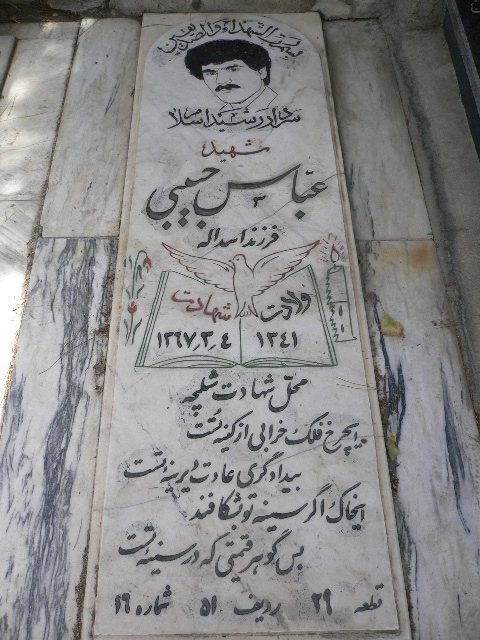 بسم رب الشهداء والصدیقین
سردار رشید اسلام
شهید
عباس حبیبی
فرزند اسداله
ولادت شهادت
۱۳۴۱ ۱۳۶۷,۳,۴
محل شهادت شلمچه
ایچرخ فلک خرابی از کینه تست
بیدادگری عادت دیرینه تست
ایخاک اگر سینه تو بشکافند
بس گوهر قیمتی که در سینه تست
قطعه ۲۹ ردیف ۵۱ شماره ۱۶